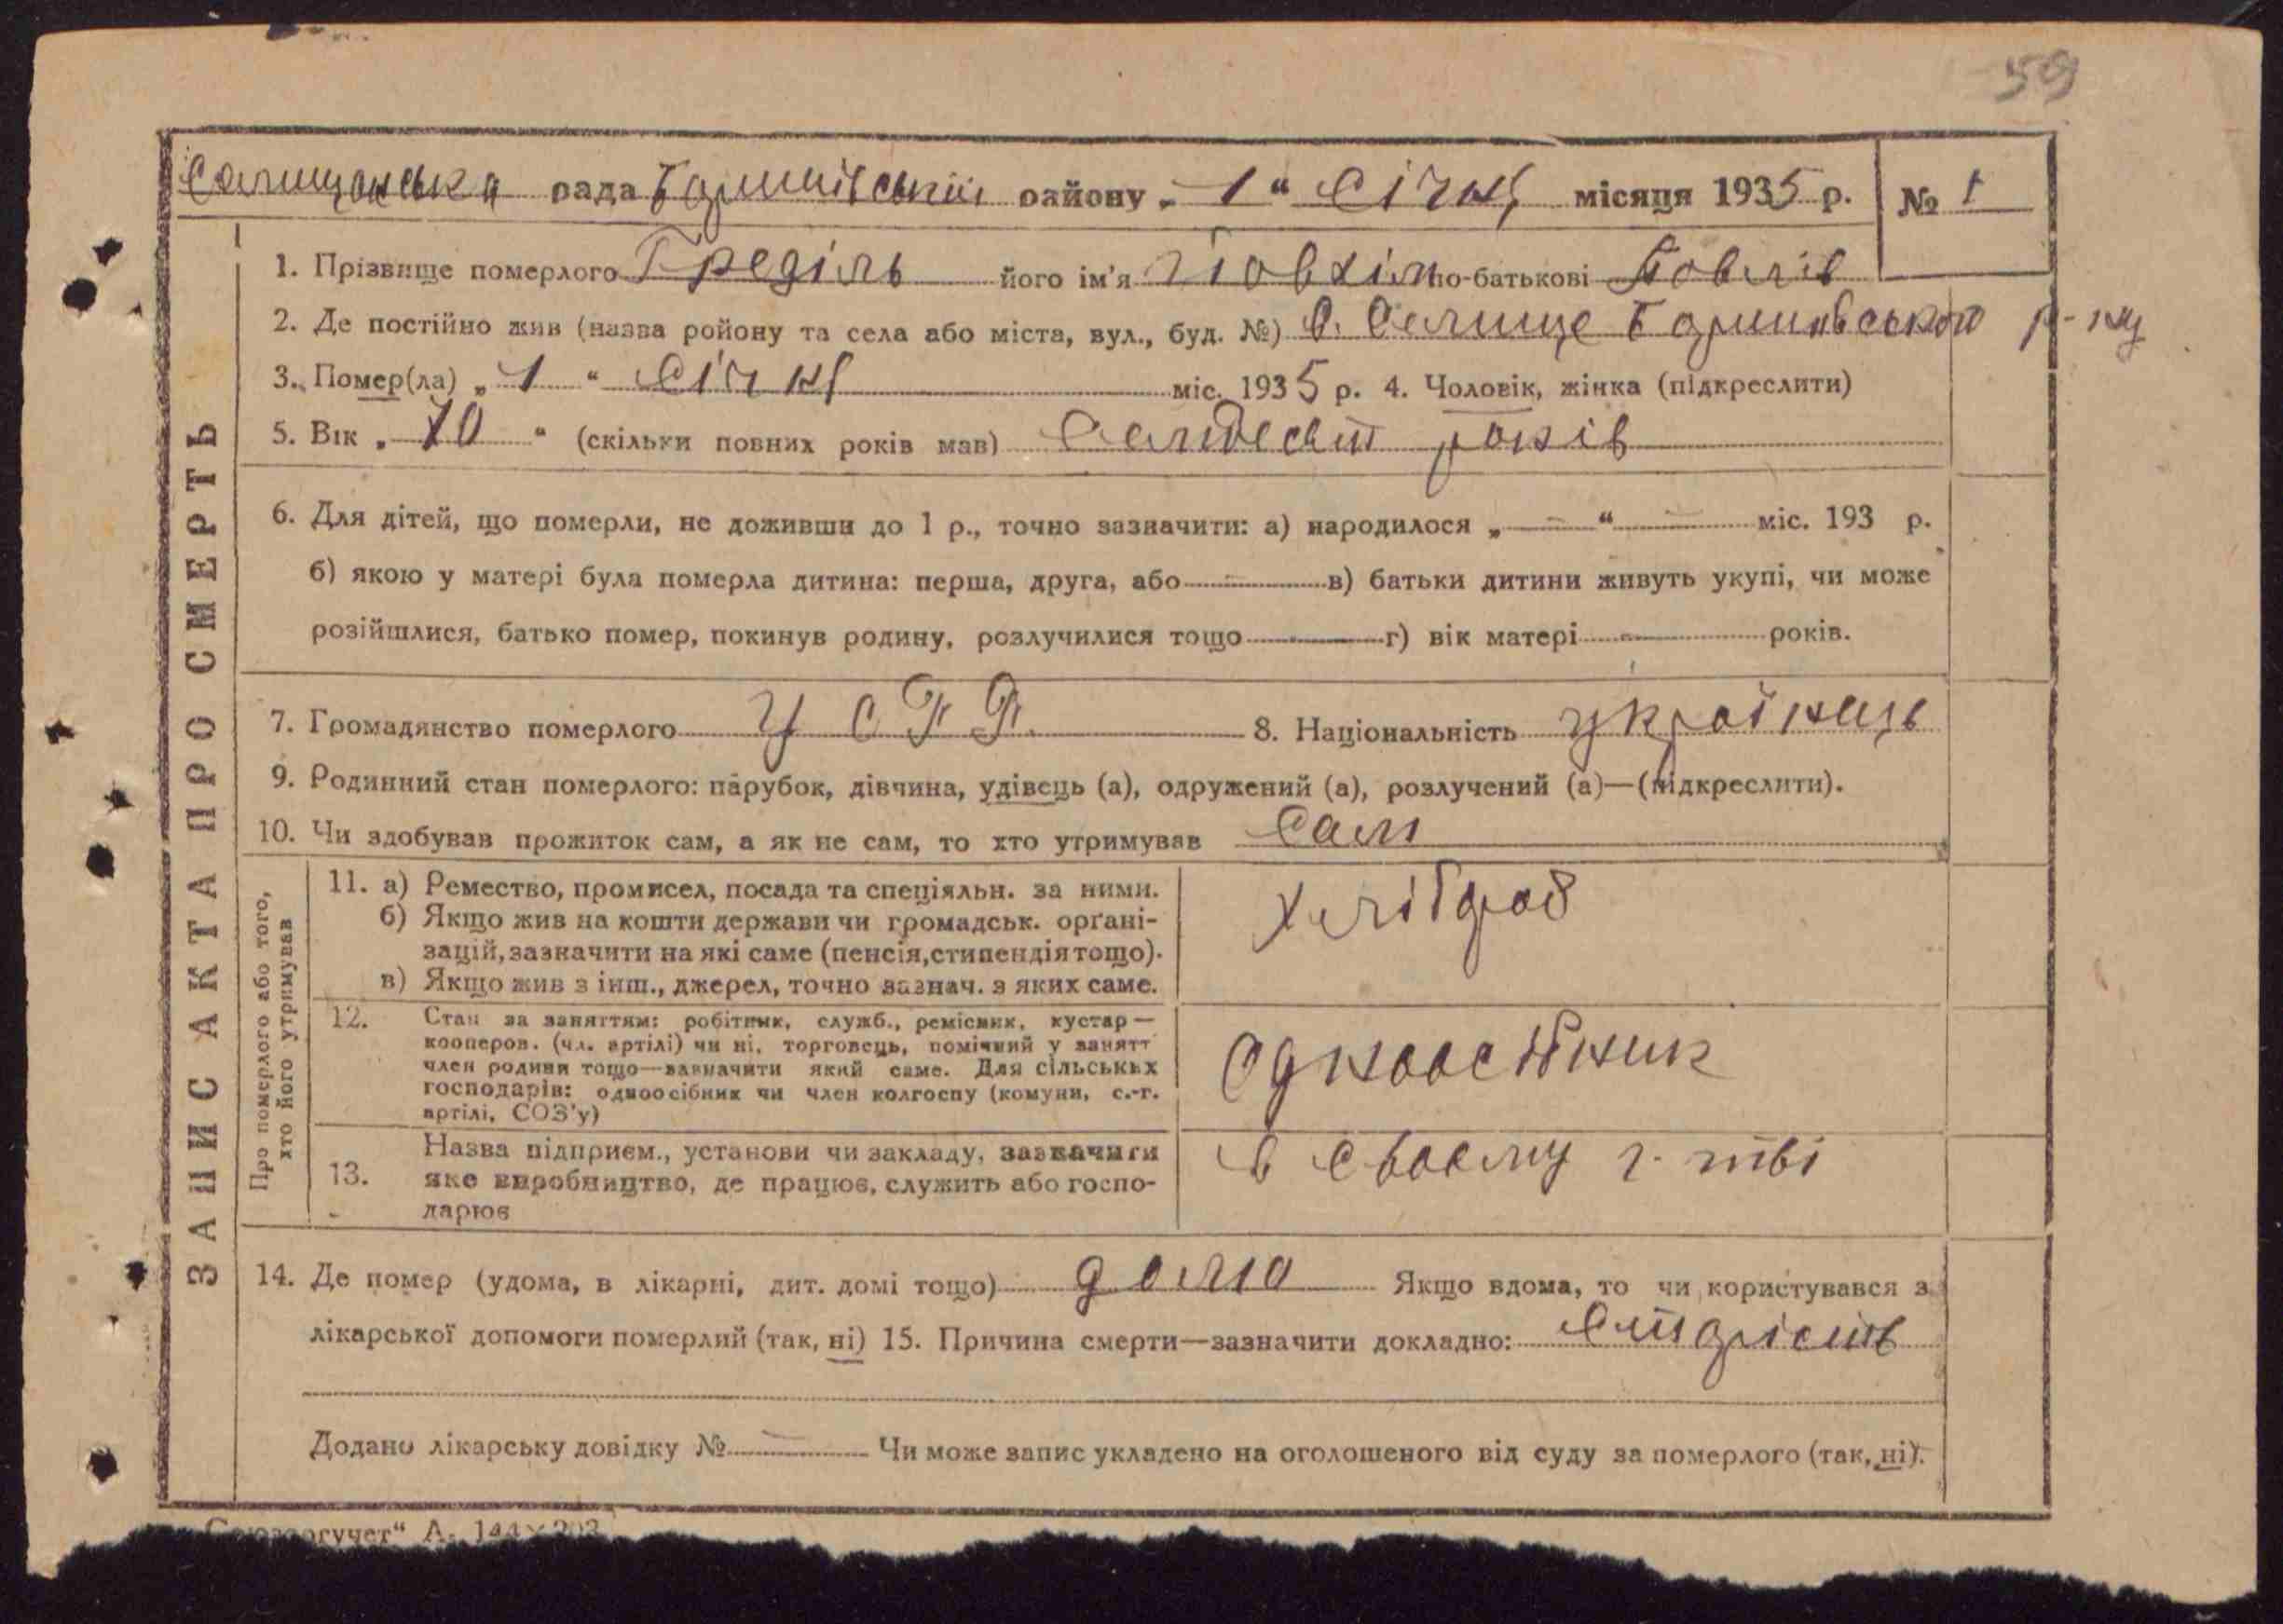 59
Селищанська рада Баришівський району „1“ Січня місяця 1935 р. № 1
ЗАПИС АКТА ПРО СМЕРТЬ
1. Прізвище померлого Греділь його ім'я Йовхим по-батькові Павлів
2. Де постійно жив (назва ройону та села або міста, вул., буд. №) С. Селище Баришівського р-ну
3. Помер(ла) „1“ Січня міс. 1935 р. 4. Чоловік, жінка (підкреслити)
5. Вік „70“ (скільки повних років мав) Семдесят років
6. Для дітей, що померли, не доживши до 1 р., точно зазначити: а) народилося „—“ — міс. 193 р.
б) якою у матері була померла дитина: перша, друга, або — в) батьки дитини живуть укупі, чи може
розійшлися, батько помер, покинув родину, розлучилися тощо — г) вік матері — років.
7. Громадянство померлого УСРР. 8. Національність українець
9. Родинний стан померлого: парубок, дівчина, удівець (а), одружений (а), розлучений (а)—(підкреслити).
10. Чи здобував прожиток сам, а як не сам, то хто утримував Сам
Про померлого або того,
хто його утримував
11. а) Ремество, промисел, посада та спеціяльн. за ними.
б) Якщо жив на кошти держави чи громадськ. орґані-
зацій, зазначити на які саме (пенсія, стипендія тощо).
в) Якщо жив з інш., джерел, точно зазнач. з яких саме.
Хлібороб
12. Стан за заняттям: робітник, служб., ремісник, кустар—
кооперов. (чл. артілі) чи ні, торговець, помічний у занятт
член родини тощо—зазначити який саме. Для сільських
господарів: одноосібник чи член колгоспу (комуни, с.-г.
артілі, СОЗ'у)
Одноосібник
13. Назва підприєм., установи чи закладу, зазначити
яке виробництво, де працює, служить або госпо-
дарює
в своєму г-тві
14. Де помер (удома, в лікарні, дит. домі тощо) дома Якщо вдома, то чи користувався з
лікарської допомоги померлий (так, ні) 15. Причина смерти—зазначити докладно: Старість
Додано лікарську довідку № — Чи може запис укладено на оголошеного від суду за померлого (так, ні).
„Союзоргучет“ А. 144×203